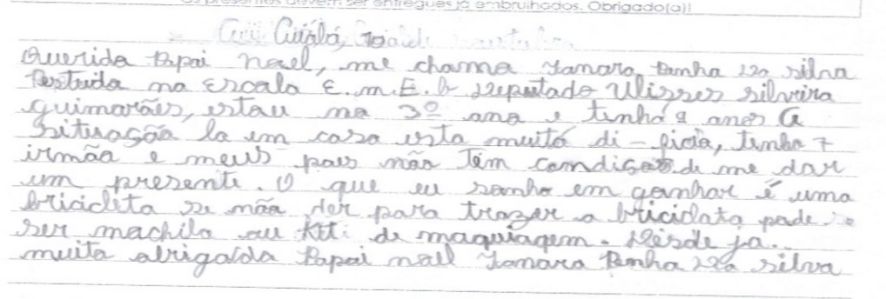 os presentes devem ser entregues já embrulhados. Obrigado(a)!
Cuiabá,
Querida Papai nael, me chamo Yamara Penha da silva
Testuda na escala E.m.E.b Deputado Ulisses silveira
guimarães, estau na 3º ana e tenho 9 anos a
Situasão la em casa esta muito di-ficia, tenho 7
irmãa e meus pais mão têm comdisão de me dar
um presente. O que eu sonho em ganhar é uma
bricicleta se mãa der para trazer a briciclata pade
ser machila au kiti de maquiagem. Desde ja..
muita abrigada Papai nael Yamara Penha da silva